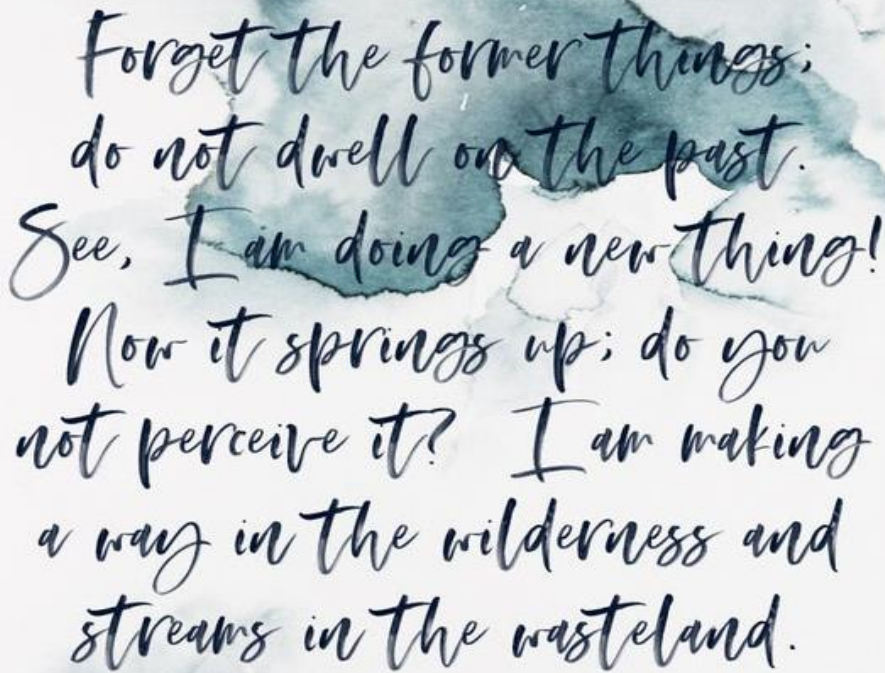 Forget the former things;
do not dwell on the past.
See, I am doing a new thing!
Now it springs up; do you
not perceive it? I am making
a way in the wilderness and
streams in the wasteland.